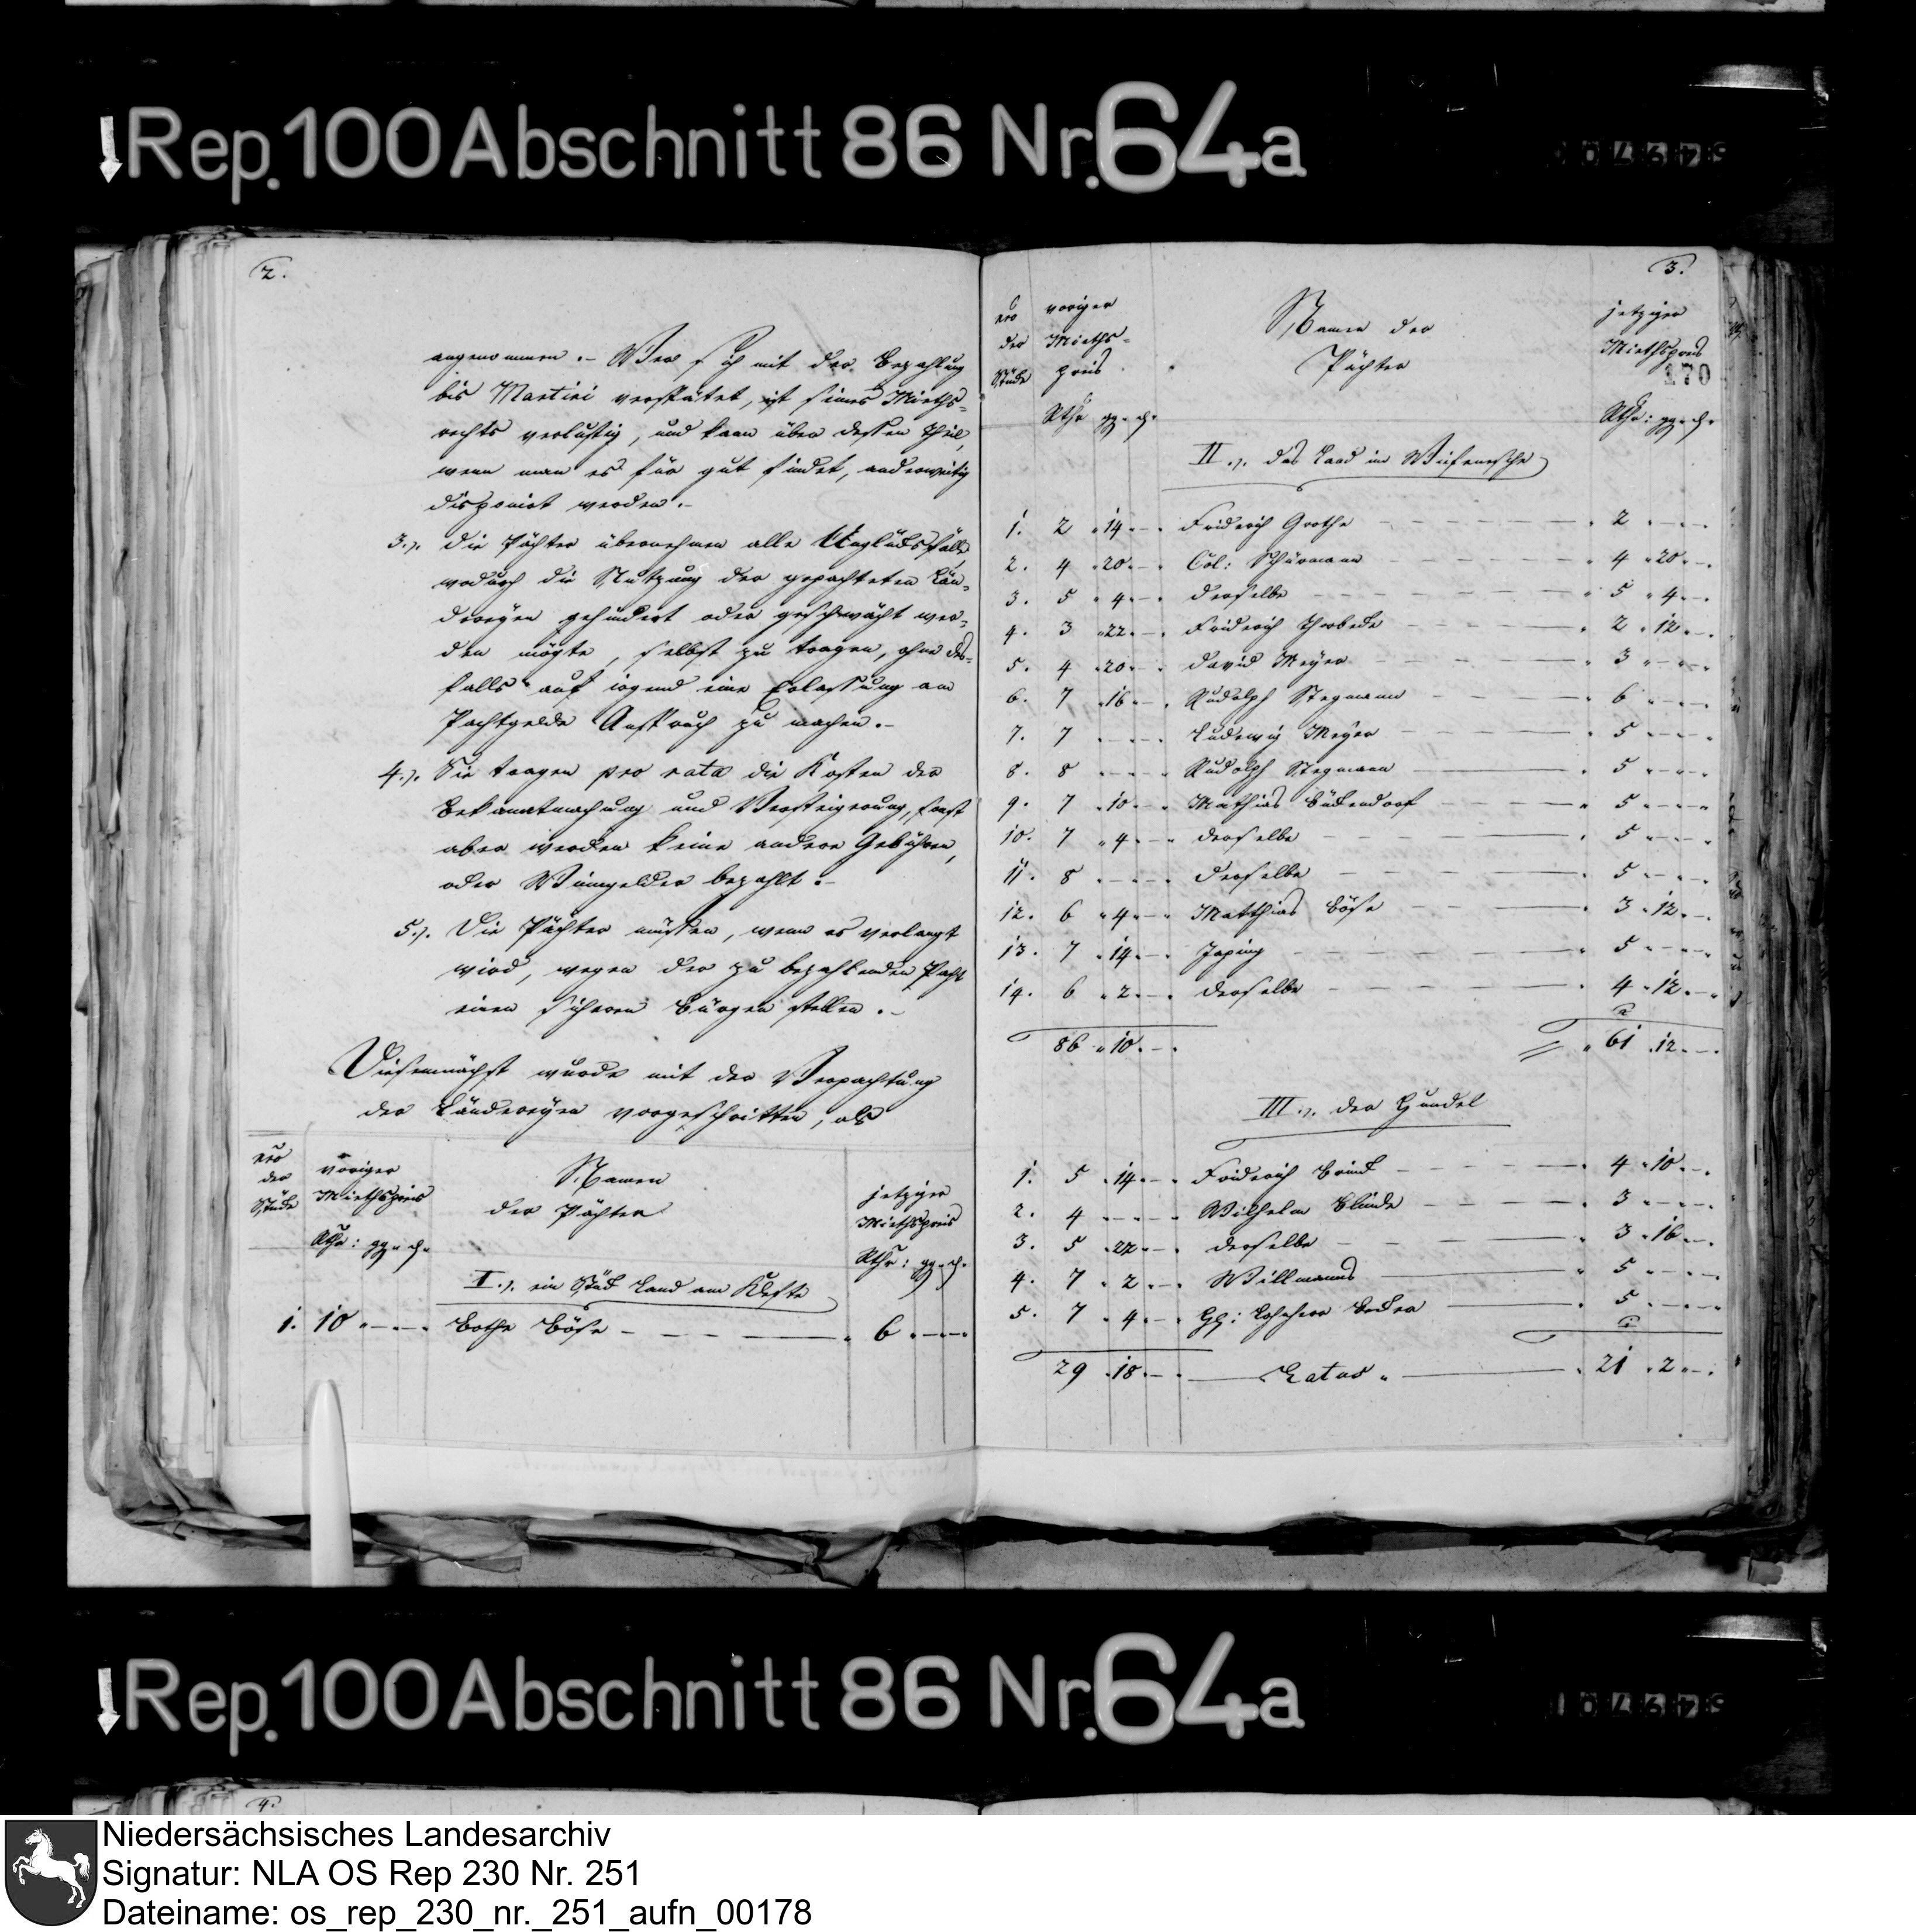 Rep. 100 Abschnitt 86 Nr. 64a
2.
angenommen. – Wer sich mit der Bezahlung
bis Martini verspätet, ist seines Mieths-
rechts verlustig, und kann über dessen Theil,
wenn man es für gut findet, anderweitig
disponirt werden. –
3.). Die Pächter übernehmen alle Unglücksfälle
wodurch die Nutzung der gepachteten Län-
dereyen gehindert oder geschwächt wer-
den mögte, selbst zu tragen, ohne des-
falls auf irgend eine Erlassung am
Pachtgelde Anspruch zu machen. –
4.). Sie tragen pro rata die Kosten der
Bekanntmachung und Versteigerung, sonst
aber werden keine andere Gebühren,
oder Winngelder bezahlt. –
5.). Die Pächter müssen, wenn es verlangt
wird, wegen der zu bezahlenden Pacht
einen sicheren Bürgen stellen. –
Diesemnächst wurde mit der Verpachtung
der Ländereyen vorgeschritten, als
nro der Stücke
voriger Miethspreis
Rthr: gg. ₰.
Namen der Pächter
jetziger Miethspreis
Rthr: gg. ₰.
I.). ein Stück Land am
1. 10 " – " – Bothe Böse – – – – " 6 " – " –
3.
nro der Stücke
voriger Mieths-preis
Rthr gg. ₰.
Namen der Pächter
jetziger Miethspreis
170
Rthr: gg. ₰.
II.). das Land im
1. 2 " 14 " – " Friderich Grothe – – – " 2 " – " –
2. 4 " 20 " – " Col: Schürmann – – – " 4 " 20 " –
3. 5 " 4 " – " derselbe – – – " 5 " 4 " –
4. 3 " 22 " – " Friderich – – – " 2 " 12 " –
5. 4 " 20 " – " David Meyer – – – " 3 " – " –
6. 7 " 16 " – " Rudolph Stegmann – – – " 6 " – " –
7. 7 " – " – " Ludewig Meyer – – – " 5 " – " –
8. 8 " – " – " Rudolph Stegmann – – – " 5 " – " –
9. 7 " 10 " – " Mathias Bückendorf – – – " 5 " – " –
10. 7 " 4 " – " derselbe – – – " 5 " – " –
11. 8 " – " – " derselbe – – – " 5 " – " –
12. 6 " 4 " – " Matthias Böse – – – " 3 " 12 " –
13. 7 " 14 " – " Japing – – – " 5 " – " –
14. 6 " 2 " – " derselbe – – – " 4 " 12 " –
86 " 10 " – " " 61 " 12 " –
III.). der
1. 5 " 14 " – " Friderich Brink – – – " 4 " 10 " –
2. 4 " – " – " Wilhelm Blinde – – – " 3 " – " –
3. 5 " 22 " – " derselbe – – – " 3 " 16 " –
4. 7 " 2 " – " Willmanns – – – " 5 " – " –
5. 7 " 4 " – " Becker – – – " 5 " – " –
29 " 18 " – " Latus " – – – " 21 " 2 " –
Rep. 100 Abschnitt 86 Nr. 64a
4.
Niedersächsisches Landesarchiv
Signatur: NLA OS Rep 230 Nr. 251
Dateiname: os_rep_230_nr._251_aufn_00178